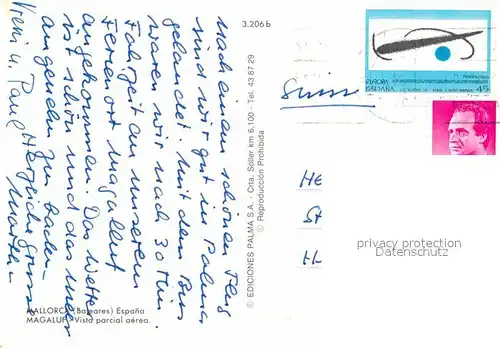 3.206 b
Nach einem schönen Flug
sind wir gut in Palma
gelandet. Mit dem Bus
waren wir nach 30 Min
Fahrzeit an unserem
Ferienort Magalluf
angekommen. Das Wetter
ist schön und das Meer
angenehm zum Baden.
Herzliche Grüsse
Vreni u. Paul
© EDICIONES PALMA S.A. - Ctra. Soller km 6,100 - Tel. 43 87 29
© Reproducción Prohibida
MALLORCA (Baleares) España
MAGALUF. Vista parcial aérea.
Suisse
EUROPA
ESPAÑA
45
HE
St
privacy protection
Datenschutz